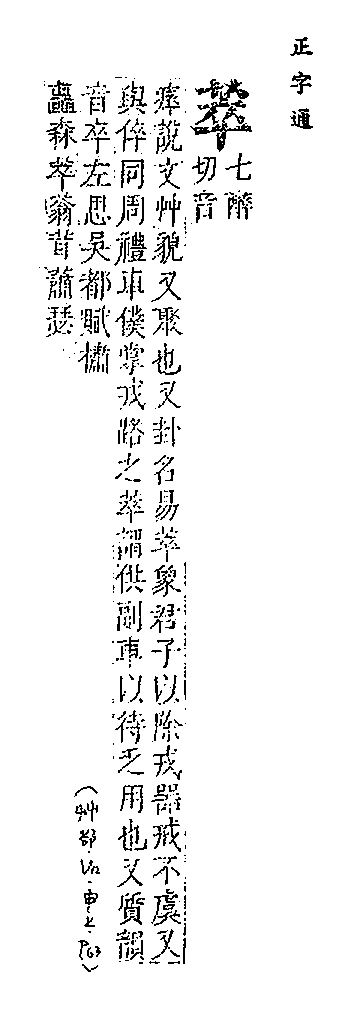 正字通
萃
七醉
切音
瘁說文艸貌又聚也又卦名易萃象君子以除戎器戒不虞又
與倅同周禮車僕掌戎路之萃謂供副車以待乏用也又質韻
音卒左思吳都賦橚
矗森萃蓊茸蕭瑟
(艸部·申上·P63)